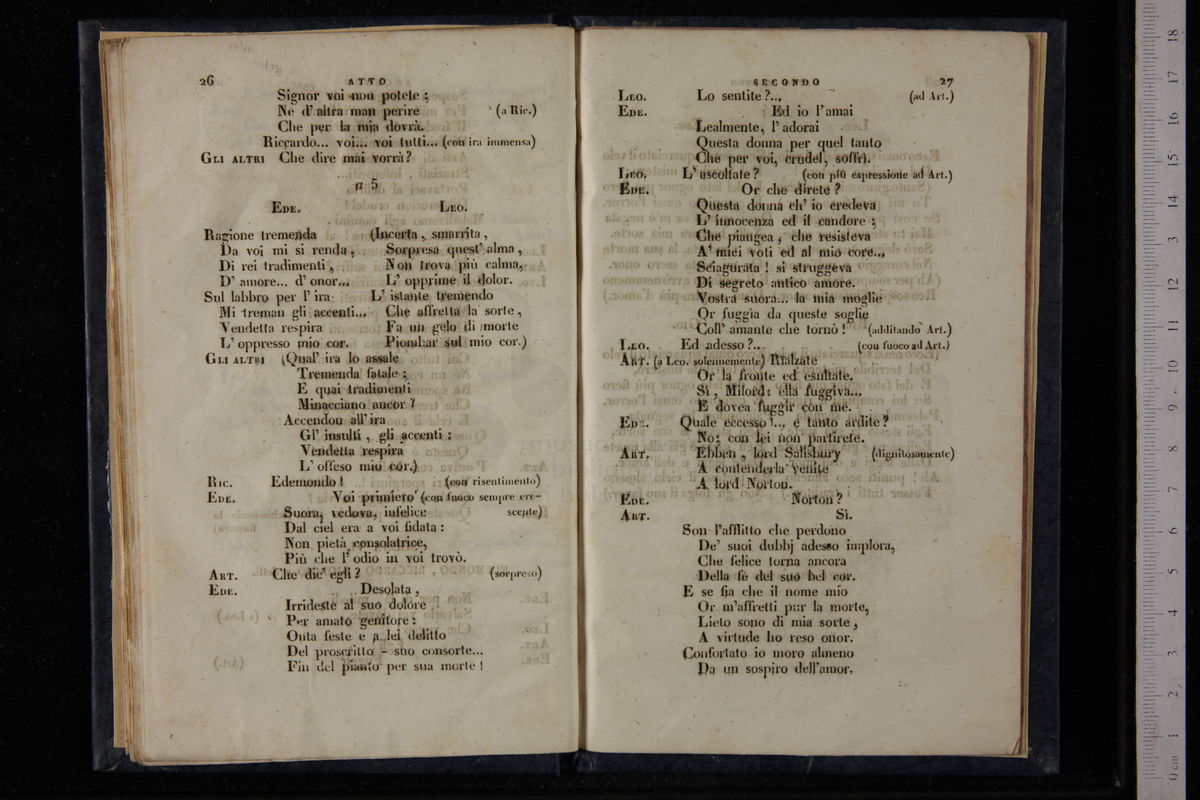 26
ATTO
Signor voi non potete;
Nè d'altra man perire (a Ric.)
Che per la mia dovrà.
Riccardo... voi... voi tutti... (con ira immensa)
GLI ALTRI Che dire mai vorrà?
a 5
EDE.
Ragione tremenda
Da voi mi si renda,
Di rei tradimenti,
D' amore... d' onor...
Sul labbro per l' ira
Mi treman gli accenti...
Vendetta respira
L' oppresso mio cor.
LEO.
(Incerta, smarrita,
Sorpresa quest' alma,
Non trova più calma,
L' opprime il dolor.
L' istante tremendo
Che affretta la sorte,
Fa un gelo di morte
Piombar sul mio cor.)
GLI ALTRI (Qual' ira lo assale
Tremenda fatale;
E quai tradimenti
Minacciano ancor?
Accendon all' ira
Gl' insulti, gli accenti:
Vendetta respira
L' offeso mio cor.)
RIC. Edemondo! (con risentimento)
EDE. Voi primiero (con fuoco sempre cre-
Suora, vedova, infelice scente)
Dal ciel era a voi fidata:
Non pietà consolatrice,
Più che l' odio in voi trovò.
ART. Che dic' egli? (sorpreso)
EDE. Desolata,
Irrideste al suo dolore
Per amato genitore:
Onta feste e a lei delitto
Del proscritto - suo consorte...
Fin del pianto per sua morte!
SECONDO
27
LEO. Lo sentite?... (ad Art.)
EDE. Ed io l' amai
Lealmente, l' adorai
Questa donna per quel tanto
Che per voi, crudel, soffrì.
LEO. L' ascoltate? (con più espressione ad Art.)
EDE. Or che direte?
Questa donna ch' io credeva
L' innocenza ed il candore;
Che piangea, che resisteva
A' miei voti ed al mio core...
Sciagurata! si struggeva
Di segreto antico amore.
Vostra suora... la mia moglie
Or fuggia da queste soglie
Coll' amante che tornò! (additando Art.)
LEO. Ed adesso?.. (con fuoco ad Art.)
ART. (a Leo. solennemente) Rialzate
Or la fronte ed esultate.
Sì, Milord: ella fuggiva...
E dovea fuggir con me.
EDE. Quale eccesso!... e tanto ardite?
No; con lei non partirete.
ART. Ebben, lord Salisbury (dignitosamente)
A contenderla venite
A lord Norton.
EDE. Norton?
ART. Sì.
Son l'afflitto che perdono
De' suoi dubbj adesso implora,
Che felice torna ancora
Della fè del suo bel cor.
E se fia che il nome mio
Or m'affretti pur la morte,
Lieto sono di mia sorte,
A virtude ho reso onor.
Confortato io moro almeno
Da un sospiro dell'amor.